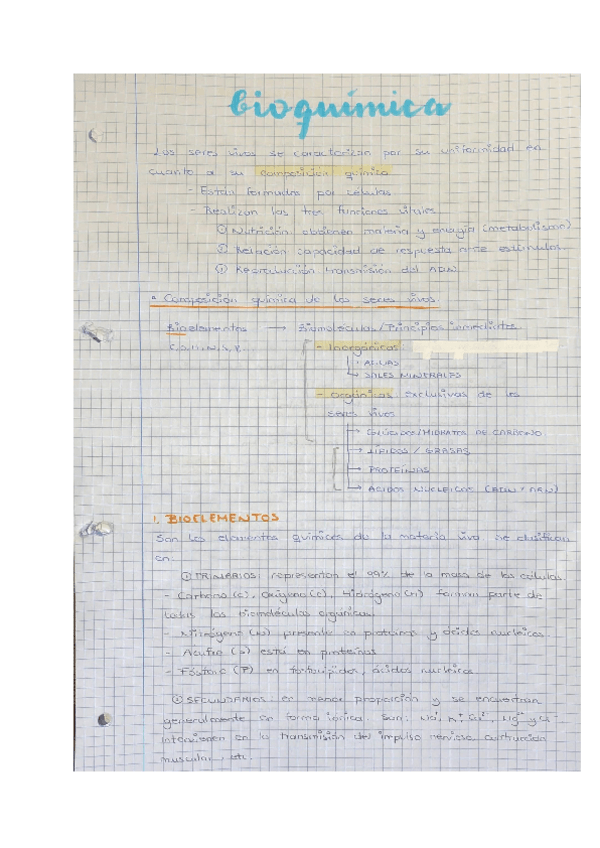 bioquímica
Los seres vivos se caracterizan por su uniformidad en
cuanto a su composición química
- Están formados por células
- Realizan las tres funciones vitales
① Nutrición: obtienen materia y energía (metabolismo)
② Relación: capacidad de respuesta ante estímulos
③ Reproducción: transmisión del ADN
* Composición química de los seres vivos
Bioelementos → Biomoléculas/Principios inmediatos
C, O, H, N, S, P.
- Inorgánicas:
→ AGUAS
→ SALES MINERALES
- Orgánicas: exclusivas de los
seres vivos
→ GLÚCIDOS/HIDRATOS DE CARBONO
→ LÍPIDOS / GRASAS
→ PROTEÍNAS
→ ÁCIDOS NUCLEICOS (ADN Y ARN)
1. BIOELEMENTOS
Son los elementos químicos de la materia viva se clasifican
en:
① PRIMARIOS: representan el 99% de la masa de las células.
- Carbono (C), Oxígeno (O), Hidrógeno (H) forman parte de
todas las biomoléculas orgánicas.
- Nitrógeno (N) presente en proteínas y ácidos nucleicos.
- Azufre (S) está en proteínas
- Fósforo (P) en fosfolípidos, ácidos nucleicos
② SECUNDARIOS: en menor proporción y se encuentran
generalmente en forma iónica. Son:
intervienen en la transmisión del impulso nervioso, contracción
muscular, etc.